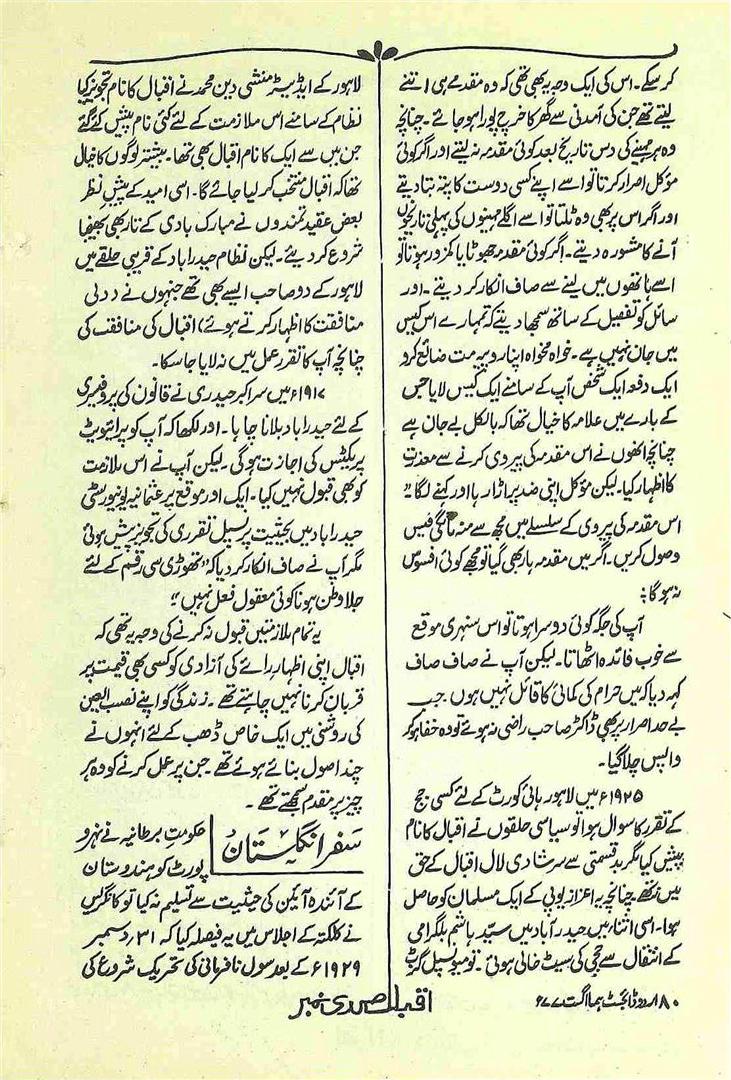 کر سکے۔ اس کی ایک وجہ یہ بھی تھی کہ وہ مقدمے ہی اتنے
لیتے تھے جن کی آمدنی سے گھر کا خرچ پورا ہو جائے۔ چنانچہ
وہ ہر مہینے کی دس تاریخ بعد کوئی مقدمہ نہ لیتے اور اگر کوئی
مؤکل اصرار کرتا تو اسے اپنے کسی دوست کا پتہ بتا دیتے
اور اگر اس پر بھی وہ نہ ٹلتا تو اسے اگلے مہینوں کی پہلی تاریخوں
آنے کا مشورہ دیتے۔ اگر کوئی مقدمہ جھوٹا یا کمزور ہوتا تو
اسے ہاتھوں میں لینے سے صاف انکار کر دیتے۔ اور
سائل کو تفصیل کے ساتھ سمجھا دیتے کہ تمہارے اس کیس
میں جان نہیں ہے۔ خواہ مخواہ اپنا روپیہ مت ضائع کرو
ایک دفعہ ایک شخص آپ کے سامنے ایک کیس لایا جس
کے بارے میں علامہ کا خیال تھا کہ بالکل بے جان ہے
چنانچہ انھوں نے اس مقدمہ کی پیروی کرنے سے معذرت
کا اظہار کیا۔ لیکن مؤکل اپنی ضد پر اڑا رہا اور کہنے لگا "
اس مقدمہ کی پیروی کے سلسلے میں مجھ سے منہ مانگی فیس
وصول کریں۔ اگر میں مقدمہ ہار بھی گیا تو مجھے کوئی افسوس
نہ ہو گا:
آپ کی جگہ کوئی دوسرا ہوتا تو اس سنہری موقع
سے خوب فائدہ اٹھاتا۔ لیکن آپ نے صاف صاف
کہہ دیا کہ میں حرام کی کمائی کا قائل نہیں ہوں۔ جب
بے حد اصرار پر بھی ڈاکٹر صاحب راضی نہ ہوئے تو وہ خفا ہو کر
واپس چلا گیا۔
۱۹۲۵ء میں لاہور ہائی کورٹ کے لئے کسی جج
کے تقرر کا سوال ہوا تو سیاسی حلقوں نے اقبال کا نام
پیش کیا مگر بدقسمتی سے سر شادی لال اقبال کے حق
میں نہ تھے۔ چنانچہ یہ اعزاز یوپی کے ایک مسلمان کو حاصل
ہوا۔ اسی اثناء میں حیدرآباد میں سید ہاشم بلگرامی
کے انتقال سے ججی کی سیٹ خالی ہوئی۔ تو میونسپل گزٹ
لاہور کے ایڈیٹر منشی دین محمد نے اقبال کا نام تجویز کیا
نظام کے سامنے اس ملازمت کے لئے کئی نام پیش کئے گئے
جن میں سے ایک کا نام اقبال بھی تھا۔ بیشتر لوگوں کا خیال
تھا کہ اقبال منتخب کر لیا جائے گا۔ اسی امید کے پیش نظر
بعض عقیدتمندوں نے مبارک بادی کے تار بھی بھیجنا
شروع کر دیئے۔ لیکن نظام حیدرآباد کے قریبی حلقے میں
لاہور کے دو صاحب ایسے بھی تھے جنہوں نے (دلی
منافقت کا اظہار کرتے ہوئے) اقبال کی منافقت کی
چنانچہ آپ کا تقرر عمل میں نہ لایا جا سکا۔
۱۹۱۷ء میں سر اکبر حیدری نے قانون کی پروفیسری
کے لئے حیدرآباد بلانا چاہا۔ اور لکھا کہ آپ کو پرائیویٹ
پریکٹس کی اجازت ہو گی۔ لیکن آپ نے اس ملازمت
کو بھی قبول نہیں کیا۔ ایک اور موقع پر عثمانیہ یونیورسٹی
حیدرآباد میں بحیثیت پرنسپل تقرری کی تجویز پیش ہوئی
مگر آپ نے صاف انکار کر دیا کہ "تھوڑی سی رقم کے لئے
جلاوطن ہونا کوئی معقول فعل نہیں"
یہ تمام ملازمتیں قبول نہ کرنے کی وجہ یہ تھی کہ
اقبال اپنی اظہار رائے کی آزادی کو کسی بھی قیمت پر
قربان کرنا نہیں چاہتے تھے۔ زندگی کو اپنے نصب العین
کی روشنی میں ایک خاص ڈھب کے لئے انہوں نے
چند اصول بنائے ہوئے تھے۔ جن پر عمل کرنے کو وہ ہر
چیز پر مقدم سمجھتے تھے۔
سفر انگلستان
حکومت برطانیہ نے نہرو
رپورٹ کو ہندوستان
کے آئندہ آئین کی حیثیت سے تسلیم نہ کیا تو کانگریس
نے کلکتہ کے اجلاس میں یہ فیصلہ کیا کہ ۳۱ دسمبر
۱۹۲۹ء کے بعد سول نافرمانی کی تحریک شروع کی
۱۸۰ اردو ڈائجسٹ ہما اگست ۷۷ء
اقبال صدی نمبر